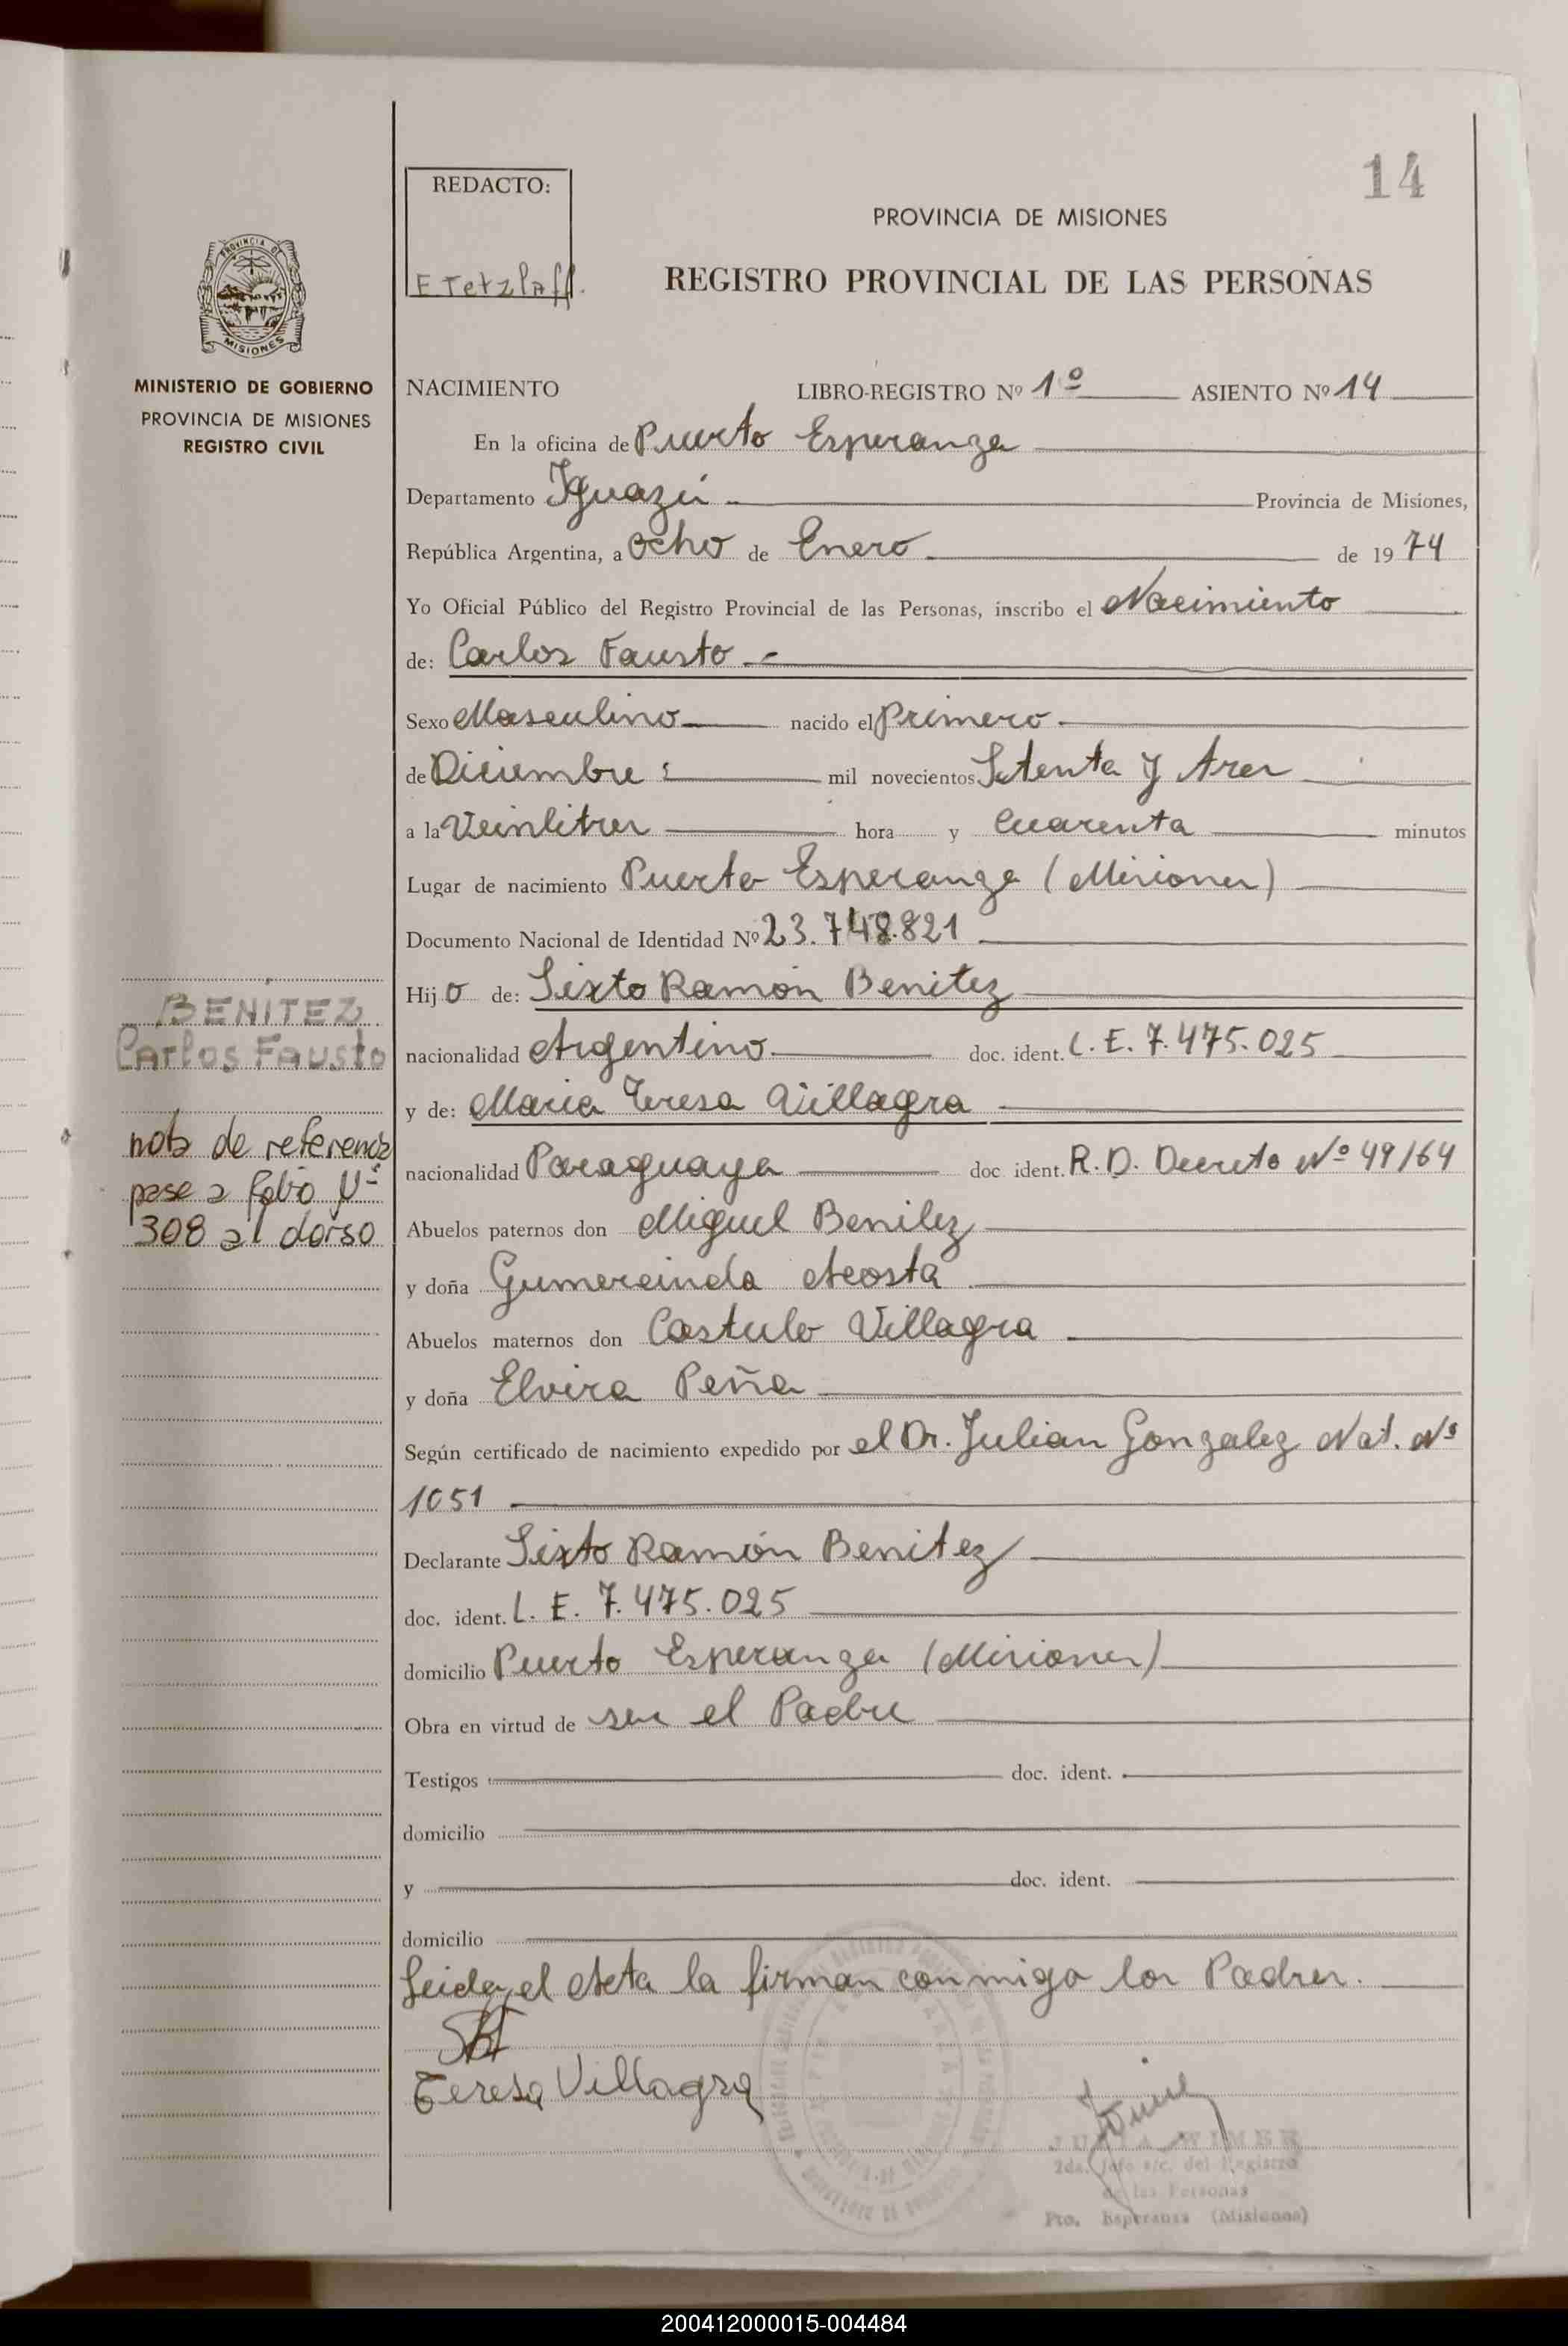 14
REDACTO:
E Tetzlaff.
PROVINCIA DE MISIONES
REGISTRO PROVINCIAL DE LAS PERSONAS
PROVINCIA DE
MISIONES
MINISTERIO DE GOBIERNO
PROVINCIA DE MISIONES
REGISTRO CIVIL
NACIMIENTO LIBRO-REGISTRO Nº 1º ASIENTO Nº 14
En la oficina de Puerto Esperanza
Departamento Iguazú Provincia de Misiones,
República Argentina, a Ocho de Enero de 1974
Yo Oficial Público del Registro Provincial de las Personas, inscribo el Nacimiento
de: Carlos Fausto
Sexo Masculino nacido el Primero
de Diciembre mil novecientos Setenta y tres
a la Veintitres hora y Cuarenta minutos
Lugar de nacimiento Puerto Esperanza (Misiones)
Documento Nacional de Identidad Nº 23.748.821
Hijo de: Sixto Ramón Benitez
nacionalidad Argentino doc. ident. L. E. 7.475.025
y de: Maria Teresa Villagra
nacionalidad Paraguaya doc ident. R. D. Decreto Nº 49/64
Abuelos paternos don Miguel Benitez
y doña Gumercinda Acosta
Abuelos maternos don Castulo Villagra
y doña Elvira Peña
Según certificado de nacimiento expedido por el Dr. Julian Gonzalez Mat. Nº
1051
Declarante Sixto Ramón Benitez
doc. ident. L. E. 7.475.025
domicilio Puerto Esperanza (Misiones)
Obra en virtud de ser el Padre
Testigos doc. ident.
domicilio
y doc. ident.
domicilio
Leida el Acta la firman conmigo los Padres.
Teresa Villagra
2da. Jefe a/c. del Registro
de las Personas
Pto. Esperanza (Misiones)
BENITEZ
Carlos Fausto
nota de referencia
pase a folio Nº
308 al dorso
200412000015-004484